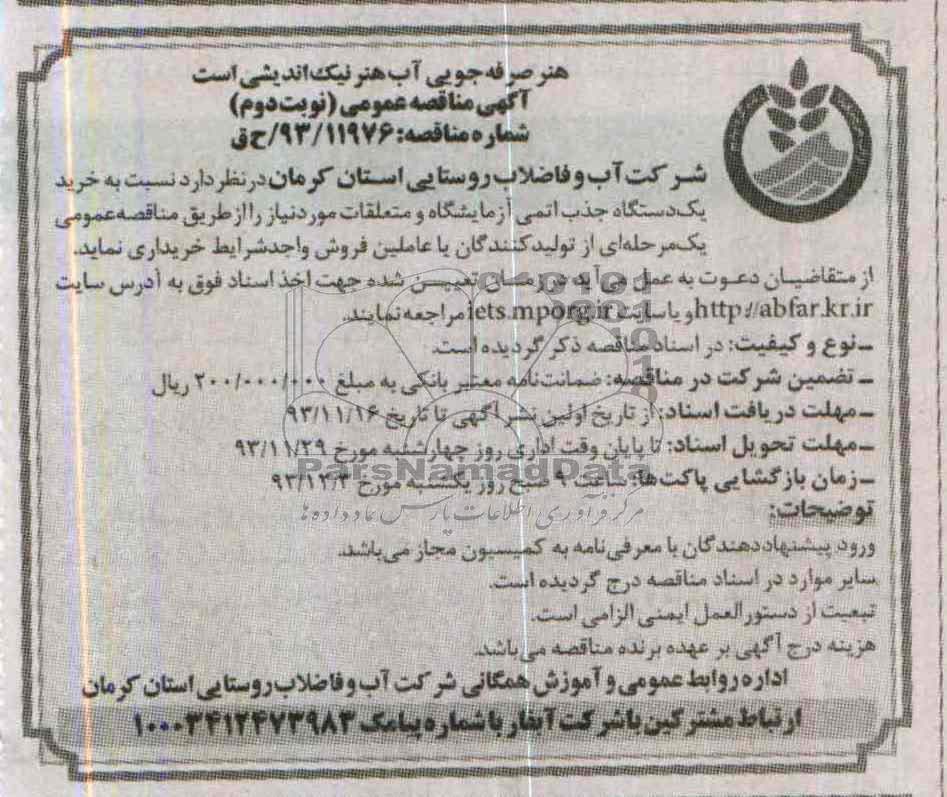 هنر صرفه جویی آب هنر نیک اندیشی است
آگهی مناقصه عمومی (نوبت دوم)
شماره مناقصه: ۹۳/۱۱۹۷۶/ح ق
شرکت آب و فاضلاب روستایی استان کرمان در نظر دارد نسبت به خرید
یک دستگاه جذب اتمی آزمایشگاه و متعلقات مورد نیاز را از طریق مناقصه عمومی
یک مرحله‌ای از تولیدکنندگان یا عاملین فروش واجد شرایط خریداری نماید.
از متقاضیان دعوت به عمل می آید در زمان تعیین شده جهت اخذ اسناد فوق به آدرس سایت
http://abfar.kr.ir و یا سایت iets.mporg.ir مراجعه نمایند.
ـ نوع و کیفیت: در اسناد مناقصه ذکر گردیده است.
ـ تضمین شرکت در مناقصه: ضمانت‌نامه معتبر بانکی به مبلغ ۲۰۰/۰۰۰/۰۰۰ ریال
ـ مهلت دریافت اسناد: از تاریخ اولین نشر آگهی تا تاریخ ۹۳/۱۱/۱۶
ـ مهلت تحویل اسناد: تا پایان وقت اداری روز چهارشنبه مورخ ۹۳/۱۱/۲۹
ParsNamadData
ـ زمان بازگشایی پاکت‌ها: ساعت ۹ صبح روز یکشنبه مورخ ۹۳/۱۲/۳
مرکز فرآوری اطلاعات پارس نماد داده ها
توضیحات:
ورود پیشنهاددهندگان با معرفی نامه به کمیسیون مجاز می باشد.
سایر موارد در اسناد مناقصه درج گردیده است.
تبعیت از دستورالعمل ایمنی الزامی است.
هزینه درج آگهی بر عهده برنده مناقصه می باشد.
اداره روابط عمومی و آموزش همگانی شرکت آب و فاضلاب روستایی استان کرمان
ارتباط مشترکین با شرکت آبفار با شماره پیامک ۱۰۰۰۳۴۱۲۴۷۳۹۸۳